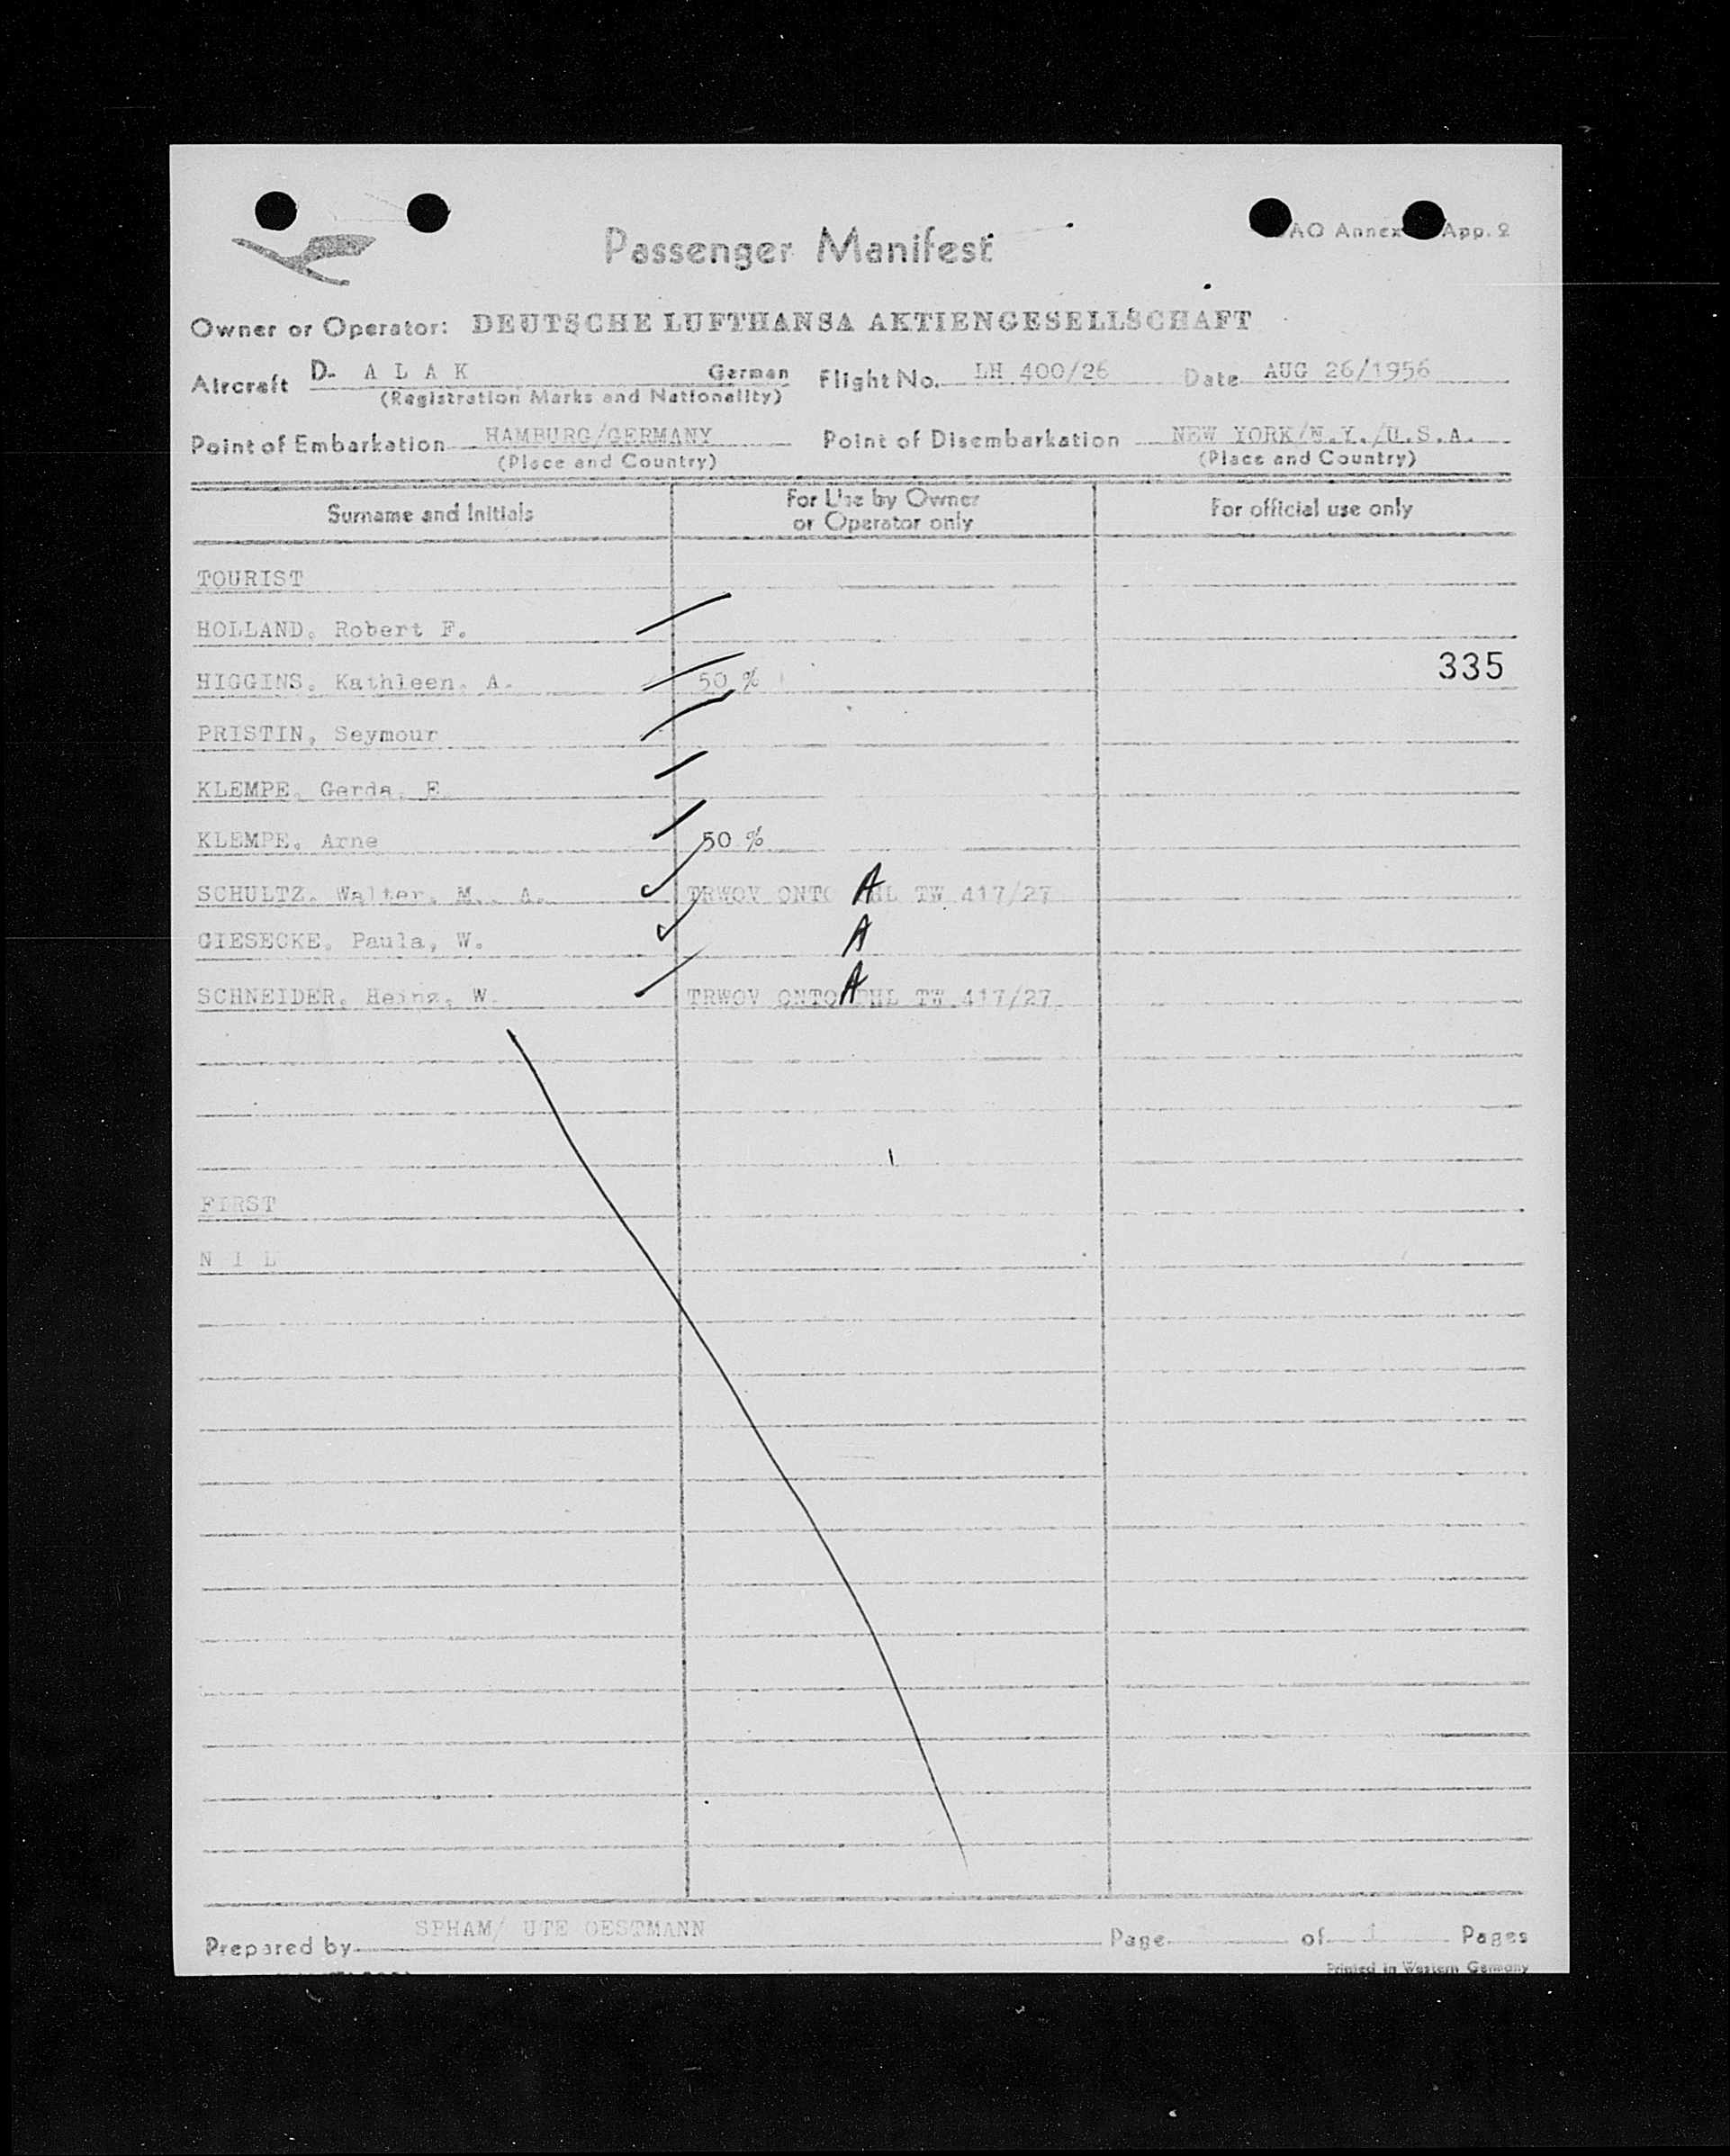 AO Annex App. 2
Passenger Manifest
Owner or Operator: DEUTSCHE LUFTHANSA AKTIENGESELLSCHAFT
Aircraft D- A L A K German Flight No. LH 400/26 Date AUG 26/1956
(Registration Marks and Nationality)
Point of Embarkation HAMBURG/GERMANY Point of Disembarkation NEW YORK/N.Y./U.S.A.
(Place and Country) (Place and Country)
Surname and Initials For Use by Owner or Operator only For official use only
TOURIST
HOLLAND, Robert F.
HIGGINS, Kathleen, A. 50 % 335
PRISTIN, Seymour
KLEMPE, Gerda, E.
KLEMPE, Arne 50 %
SCHULTZ, Walter, M., A. TRWOV ONTO A HL TW 417/27
GIESECKE, Paula, W. A
SCHNEIDER, Heinz, W. TRWOV ONTO A PHL TW 417/27
FIRST
N I L
Prepared by SPHAM/ UTE OESTMANN Page of 1 Pages
Printed in Western Germany